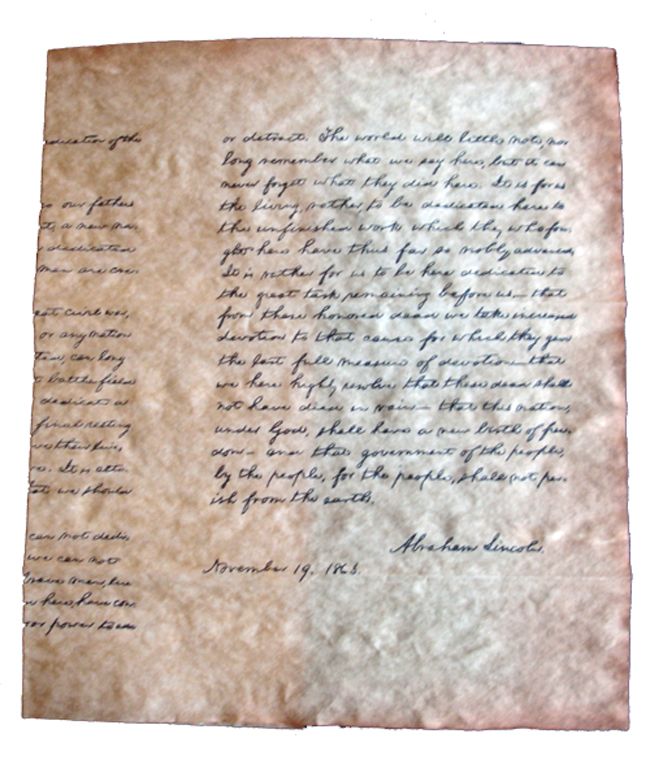 edication of the
go our fathers
a new na-
dedicated
men are cre-
eat civil war,
or any nation
ted, can long
t battlefield
dedicate a
final resting
their lives,
It is alto-
we should
can not dedi-
we can not
brave men, live
here, have con-
oor power to add
or detract. The world will little note, nor
long remember what we say here, but it can
never forget what they did here. It is for us
the living, rather, to be dedicated here to
the unfinished work which they who fou-
ght here have thus far so nobly advanced.
It is rather for us to be here dedicated to
the great task remaining before us— that
from these honored dead we take increased
devotion to that cause for which they gave
the last full measure of devotion— that
we here highly resolve that these dead shall
not have died in vain— that this nation,
under God, shall have a new birth of free-
dom— and that government of the people,
by the people, for the people, shall not per-
ish from the earth.
Abraham Lincoln.
November 19, 1863.